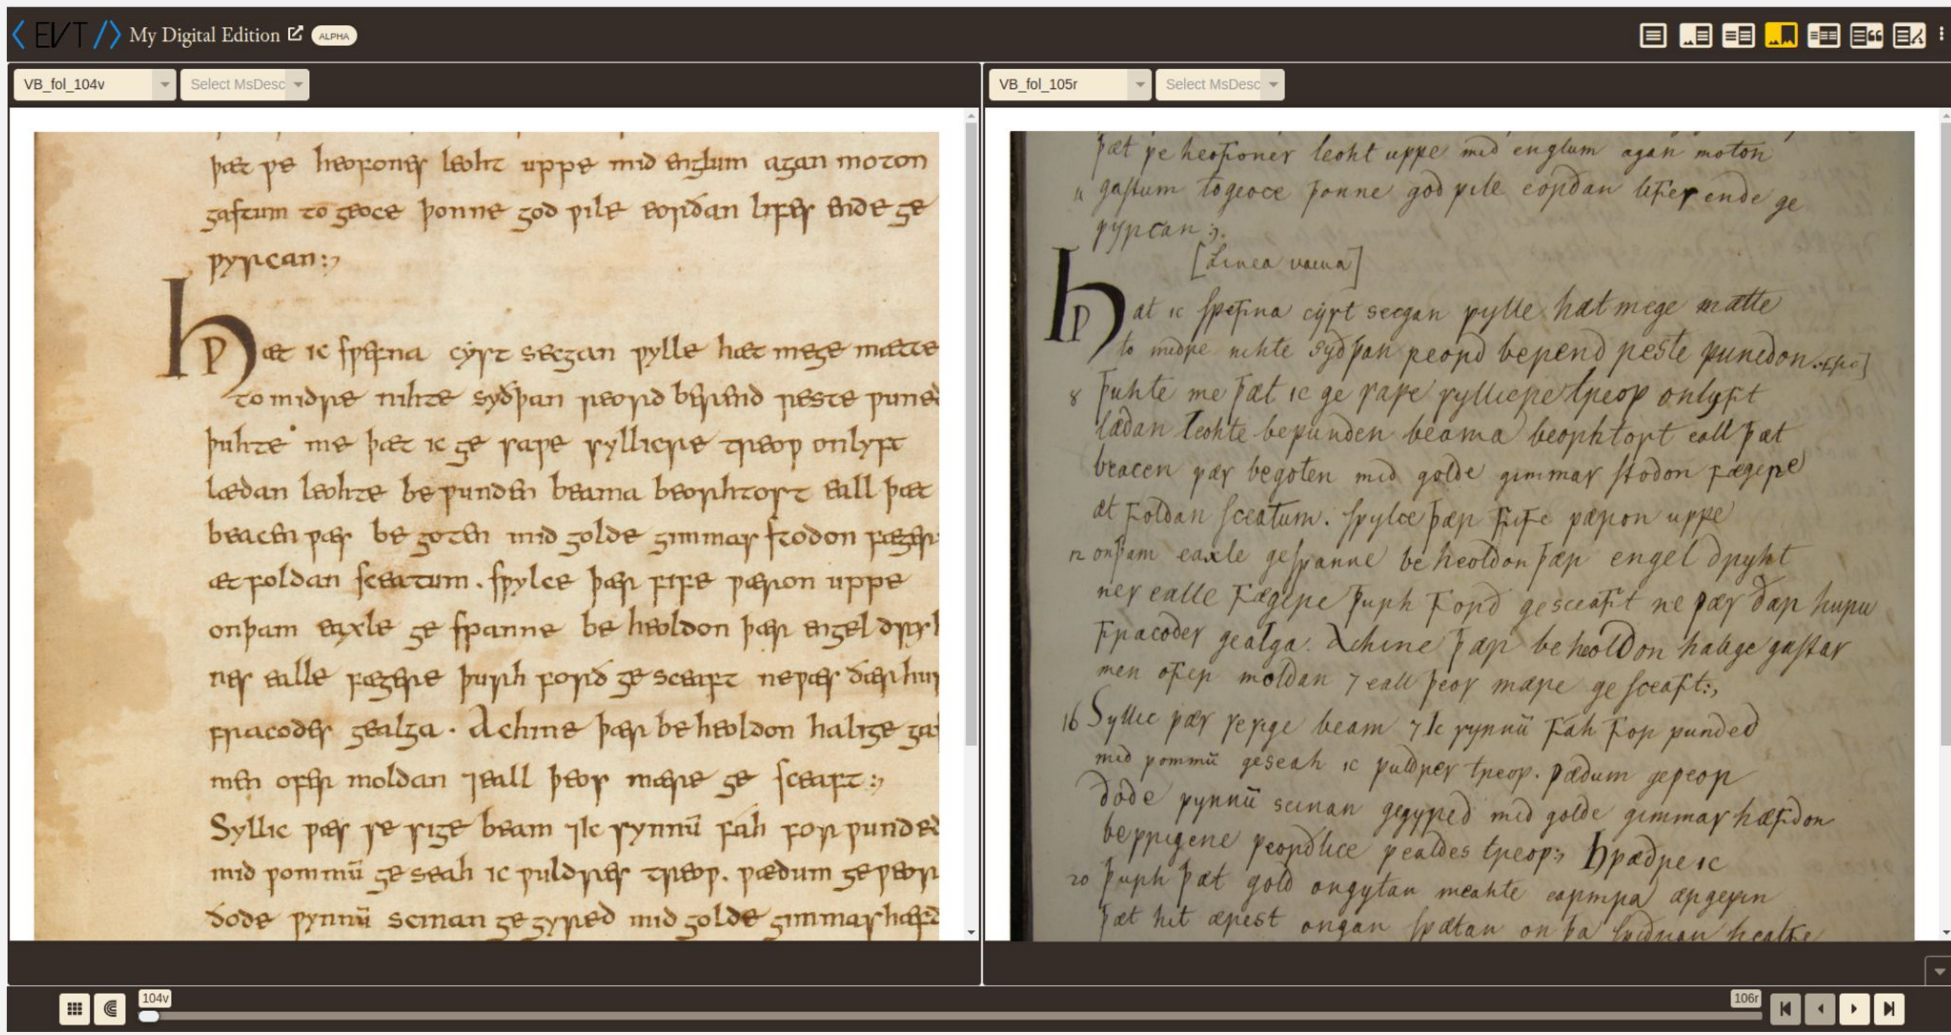 EVT
My Digital Edition
ALPHA
VB_fol_104v
Select MsDesc
VB_fol_105r
Select MsDesc
þæt ƿe heofones leoht uppe mid englum agan moton
gastum to geoce þonne god ƿile eorðan lifes ende ge
ƿyrcan:,
hǷæt ic sƿefna cyst secgan ƿylle hæt mege mætte
to midre nihte syðþan reord berend reste ƿuned
þuhte me þæt ic ge saƿe syllicre treoƿ onlyft
lædan leohte be ƿunden beama beorhtost eall þæt
beacen ƿæs be goten mid golde gimmas stodon fægere
æt foldan sceatum. sƿylce þær fife ƿæron uppe
onþam eaxle ge spanne be heoldon þær engel dryh
nes ealle fægere þurh forð ge sceaft ne ƿæs ðær hur
fracodes gealga. Ac hine þær be heoldon halige ga
men ofer moldan ⁊ eall þeos mære ge sceaft:,
Syllic ƿæs se sige beam ⁊ Ic synnū fah for ƿunded
mid ƿommū ge seah ic ƿuldres treoƿ. ƿædum ge ƿeor
ðode ƿynnū scinan ge gyred mid golde gimmas hæfd
þæt ƿe heofones leoht uppe mid englum agan moton
4 gastum to geoce þonne god ƿile eorðan lifes ende ge
ƿyrcan:,
[Linea vacua]
hǷæt ic sƿefna cyst secgan ƿylle hæt mege mætte
to midre nihte syðþan reord berend reste ƿunedon.
8 þuhte me þæt ic ge saƿe syllicre treoƿ onlyft
lædan leohte beƿunden beama beorhtost eall þæt
beacen ƿæs begoten mid golde gimmas stodon fægere
æt foldan sceatum. sƿylce þær fife ƿæron uppe
12 onþam eaxle gespanne beheoldon þær engel dryht
nes ealle fægere þurh forð gesceaft ne ƿæs ðær huru
fracodes gealga. Ac hine þær beheoldon halige gastas
men ofer moldan ⁊ eall þeos mære ge sceaft:,
16 Syllic ƿæs se sige beam ⁊ Ic synnū fah for ƿunded
mid ƿommū geseah ic ƿuldres treoƿ. ƿædum geƿeor
ðode ƿynnū scinan gegyred mid golde gimmas hæfdon
beƿrigene ƿeorðlice ƿealdes treoƿ:, hƿæðre ic
20 þurh þæt gold ongytan meahte earmra ærgeƿin
þæt hit ærest ongan sƿætan on þa sƿiðran healfe
104v
106r